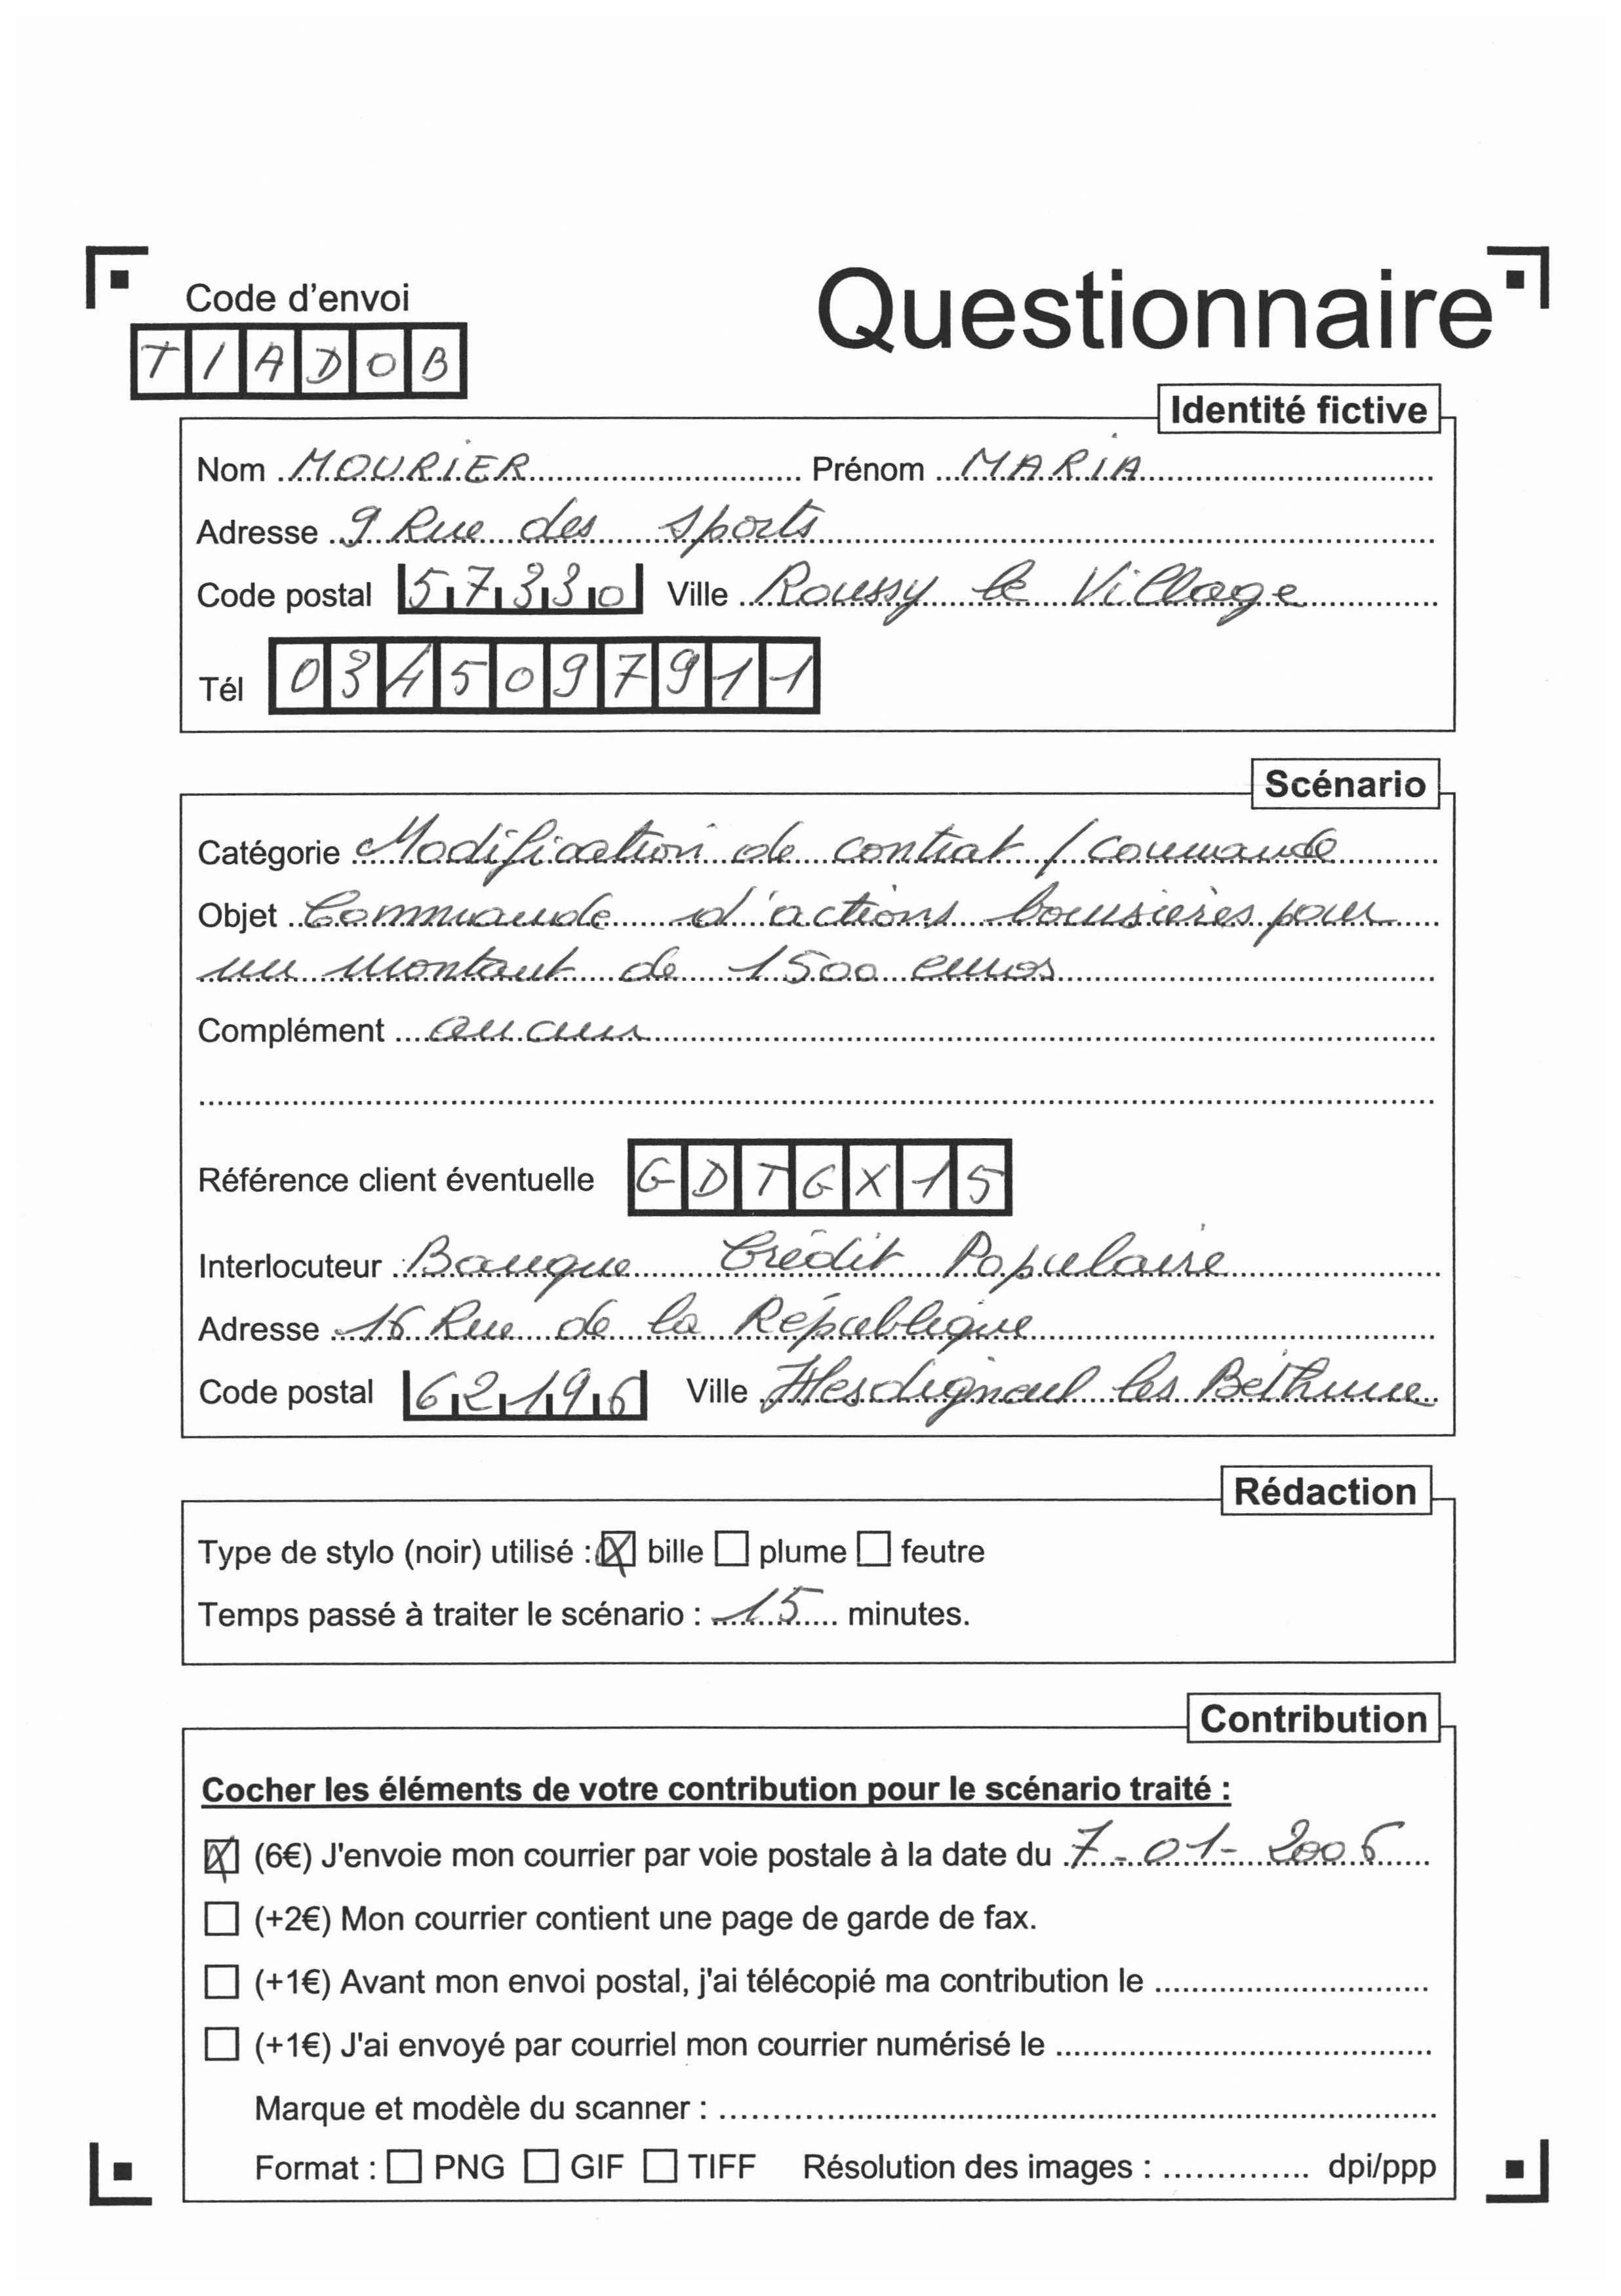 Code d'envoi
Questionnaire
T I A D O B
Identité fictive
Nom MOURIER Prénom MARIA
Adresse 9 Rue des Sports
Code postal 57330 Ville Roussy le Village
Tél 0345097911
Scénario
Catégorie Modification de contrat / commande
Objet Commande d'actions boursières pour
un montant de 1500 euros
Complément aucun
Référence client éventuelle GDTGX15
Interlocuteur Banque Crédit Populaire
Adresse 16 Rue de la République
Code postal 62196 Ville Hesdigneul les Béthune
Rédaction
Type de stylo (noir) utilisé : bille plume feutre
Temps passé à traiter le scénario : 15 minutes.
Contribution
Cocher les éléments de votre contribution pour le scénario traité :
(6€) J'envoie mon courrier par voie postale à la date du 7-01-2006
(+2€) Mon courrier contient une page de garde de fax.
(+1€) Avant mon envoi postal, j'ai télécopié ma contribution le
(+1€) J'ai envoyé par courriel mon courrier numérisé le
Marque et modèle du scanner :
Format : PNG GIF TIFF Résolution des images : dpi/ppp